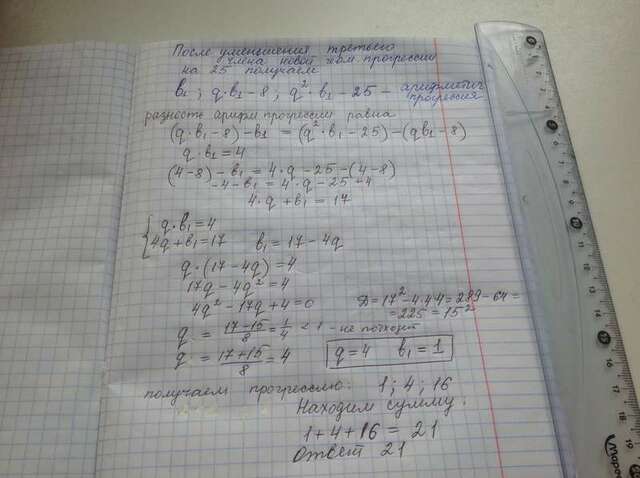 После уменьшения третьего
члена новой геом. прогрессии
на 25 получаем
b₁ ; q·b₁-8 ; q²·b₁-25 - арифметич
прогрессия
разность арифм прогрессии равна
(q·b₁-8)-b₁ = (q²·b₁-25)-(qb₁-8)
q·b₁=4
(4-8)-b₁=4·q-25-(4-8)
-4-b₁=4·q-25+4
4·q+b₁=17
{ q·b₁=4
4q+b₁=17 b₁=17-4q
q·(17-4q)=4
17q-4q²=4
4q²-17q+4=0 D=17²-4·4·4=289-64=
=225=15²
q = 17-15/8 = 1/4 < 1 - не подходит
q = 17+15/8 = 4 q=4 b₁=1
получаем прогрессию: 1; 4; 16
Находим сумму:
1+4+16=21
Ответ 21